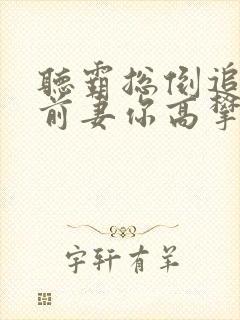 聽霸总倒追
前妻你高攀
字轩有羊